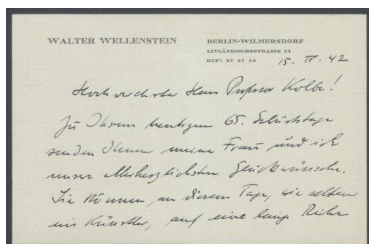 WALTER WELLENSTEIN
BERLIN-WILMERSDORF
LIVLÄNDISCHESTRASSE 24
RUF: 87 67 28
15. IV. 42
Hochverehrter Herr Professor Kolbe!
Zu Ihrem heutigen 65. Geburtstage
senden Ihnen meine Frau und ich
unsere allerherzlichsten Glückwünsche.
Sie können, an diesem Tage, wie selten
ein Künstler, auf eine lange Reihe